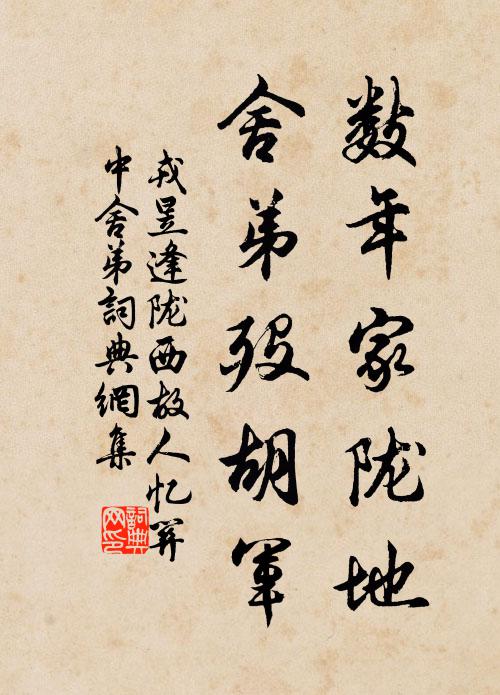 数年家陇地
舍弟殁胡军
戎昱逢陇西故人忆关
中舍弟詞典網集
詞典网印